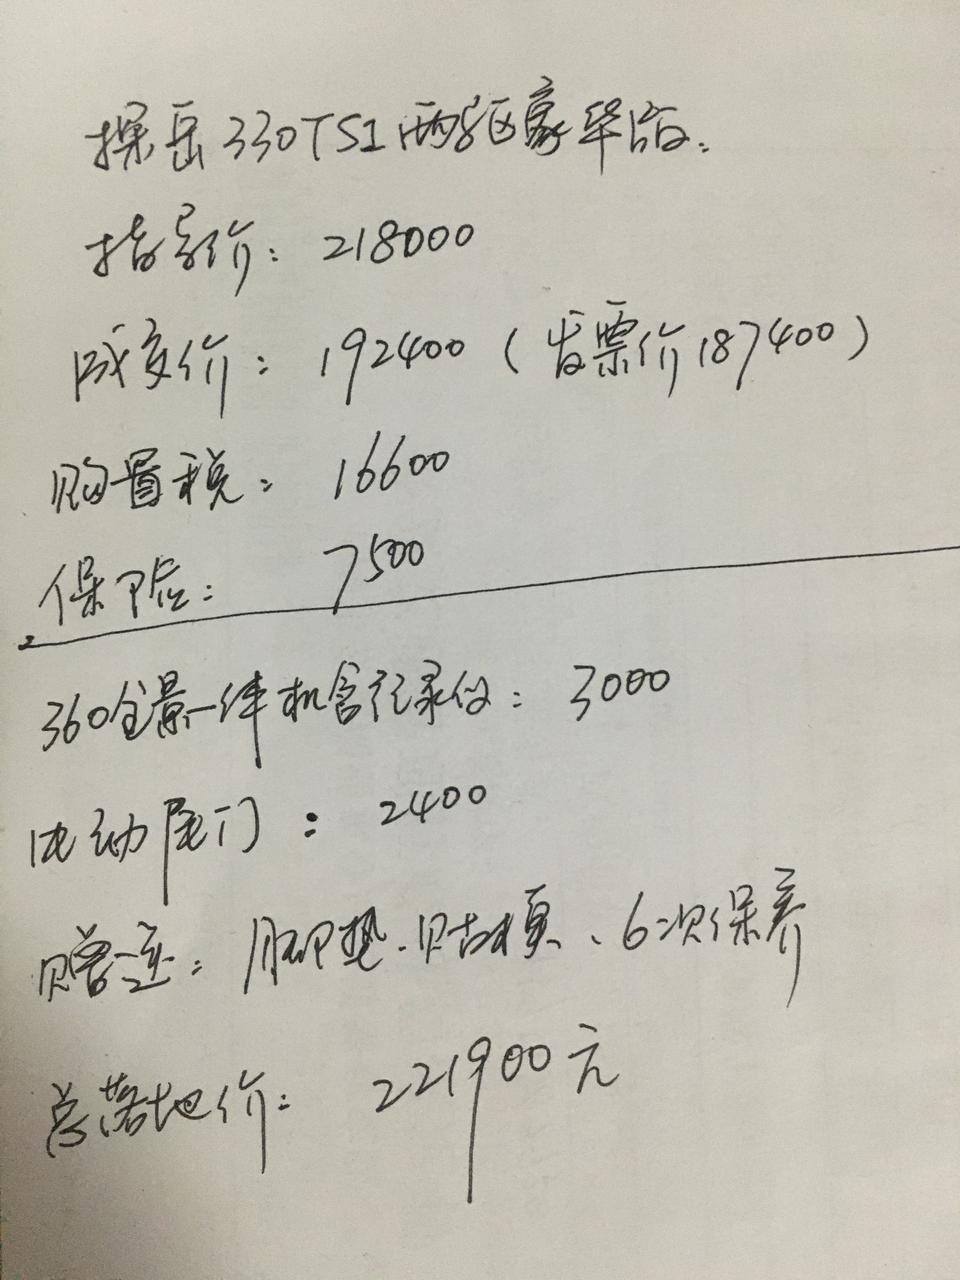 探岳330TSI两驱豪华版.
指导价: 218000
成交价: 192400 (发票价187400)
购置税: 16600
保险: 7500
360全景一体机含记录仪: 3000
电动尾门: 2400
赠送: 脚垫、贴膜、6次保养
总落地价: 221900元